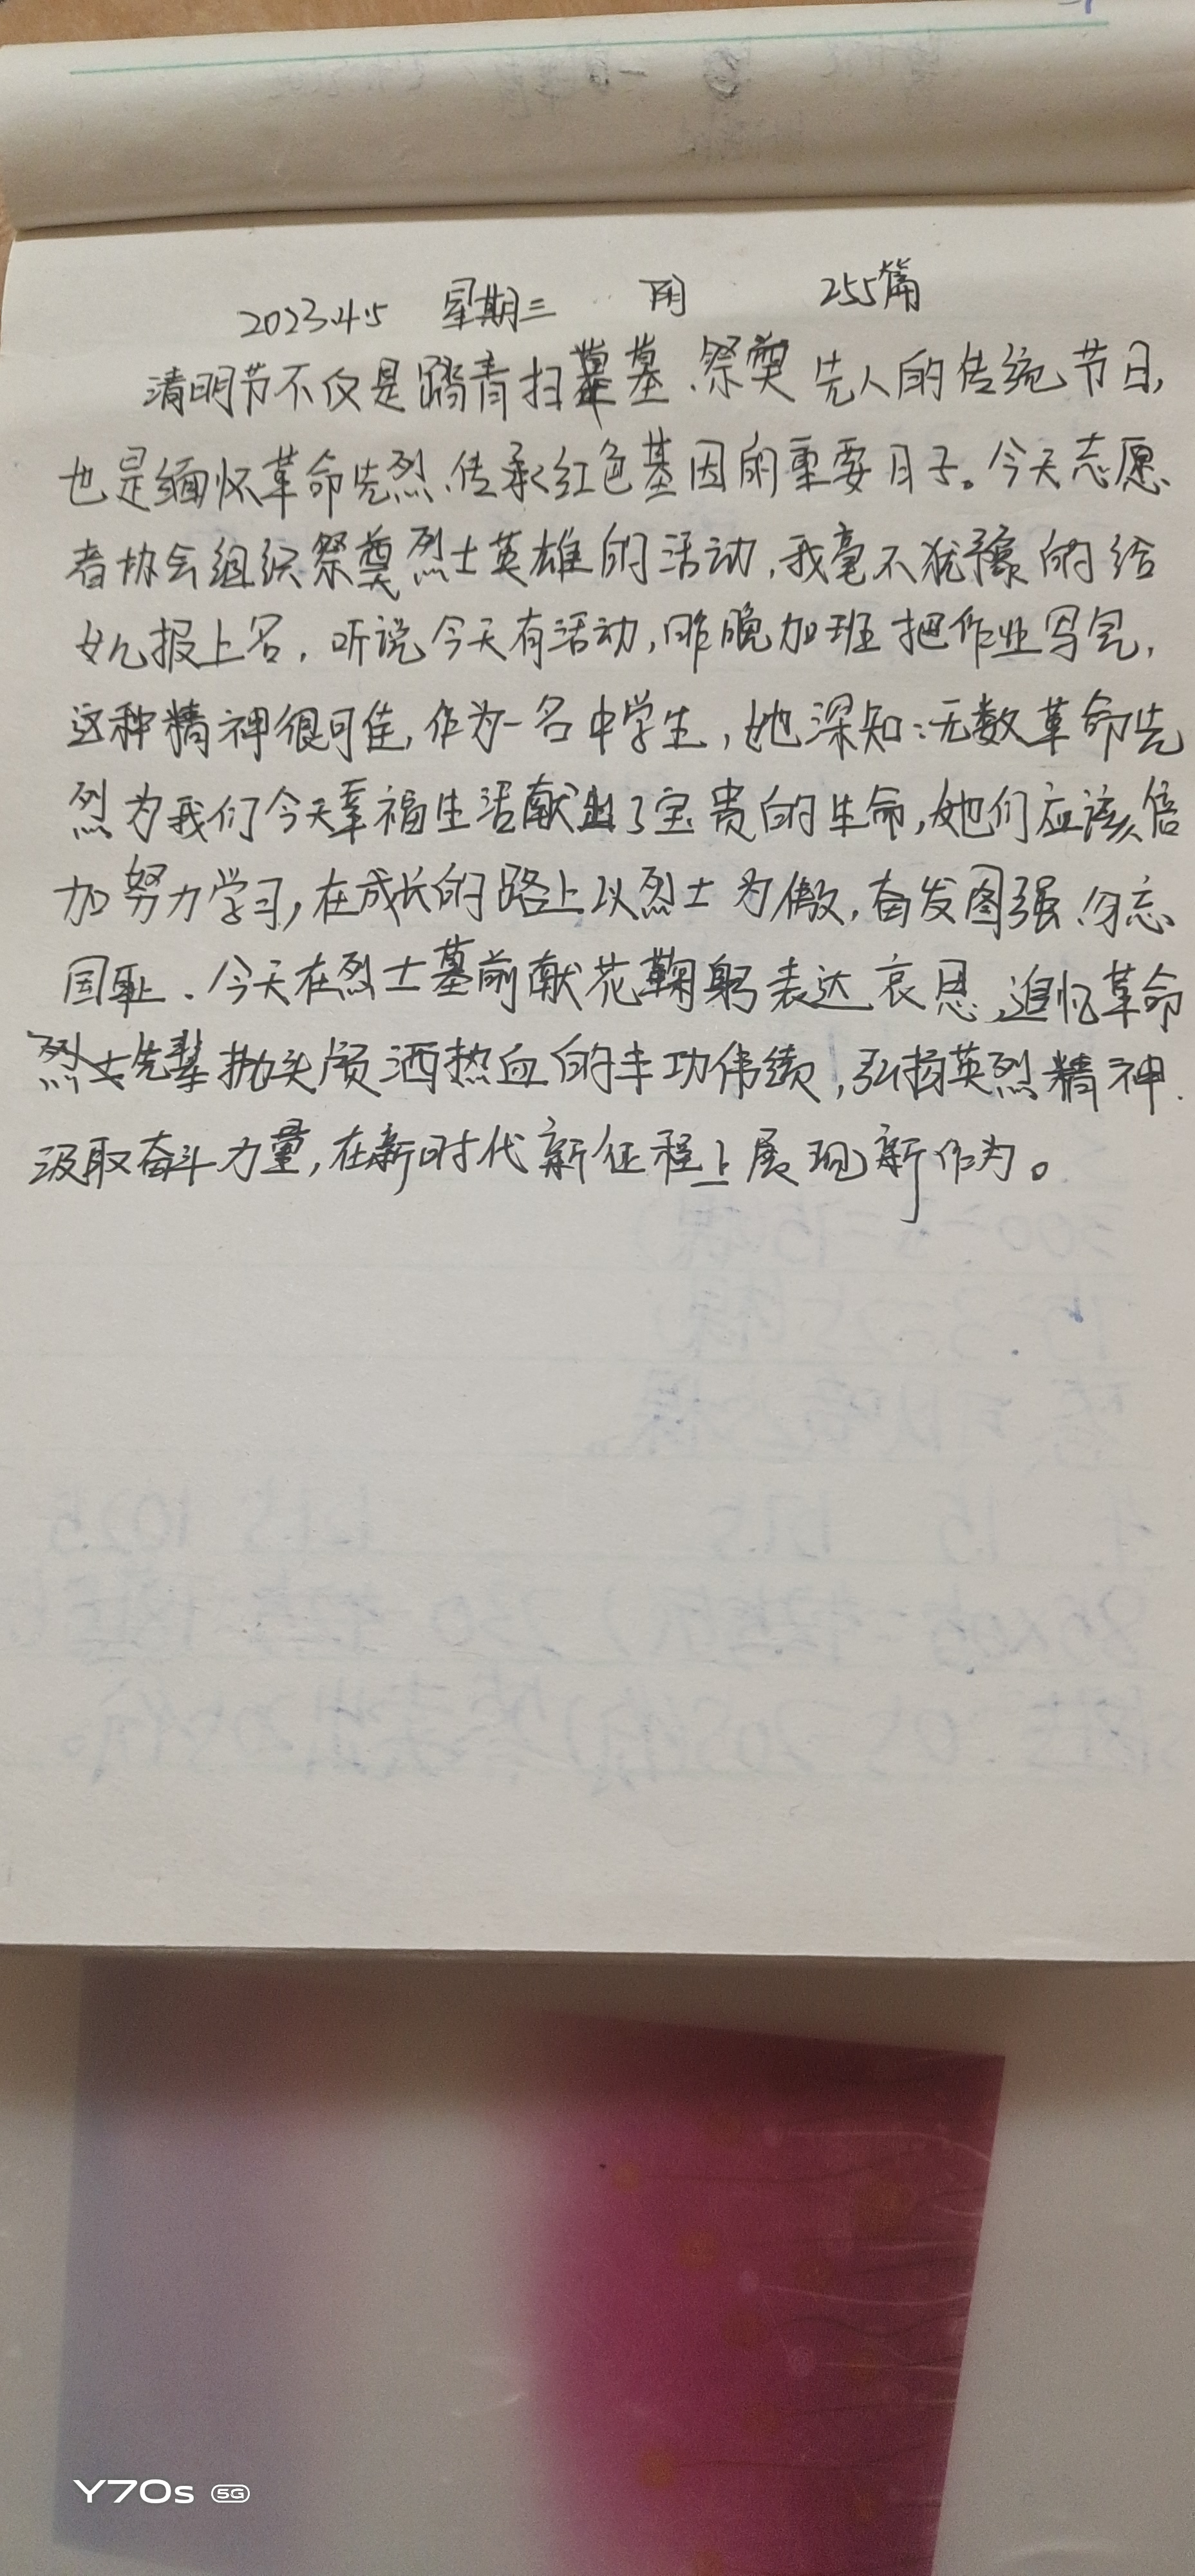 2023.4.5 星期三 阴 255篇
清明节不仅是踏青扫墓、祭奠先人的传统节日,
也是缅怀革命先烈、传承红色基因的重要日子。今天志愿
者协会组织祭奠烈士英雄的活动,我毫不犹豫的给
女儿报上名,听说今天有活动,昨晚加班把作业写完,
这种精神很可佳,作为一名中学生,她深知:无数革命先
烈为我们今天幸福生活献出了宝贵的生命,她们应该倍
加努力学习,在成长的路上以烈士为傲,奋发图强、勿忘
国耻、今天在烈士墓前献花鞠躬表达哀思,追忆革命
先辈抛头颅洒热血的丰功伟绩,弘扬英烈精神、
汲取奋斗力量,在新时代新征程上展现新作为。
Y70s 5G